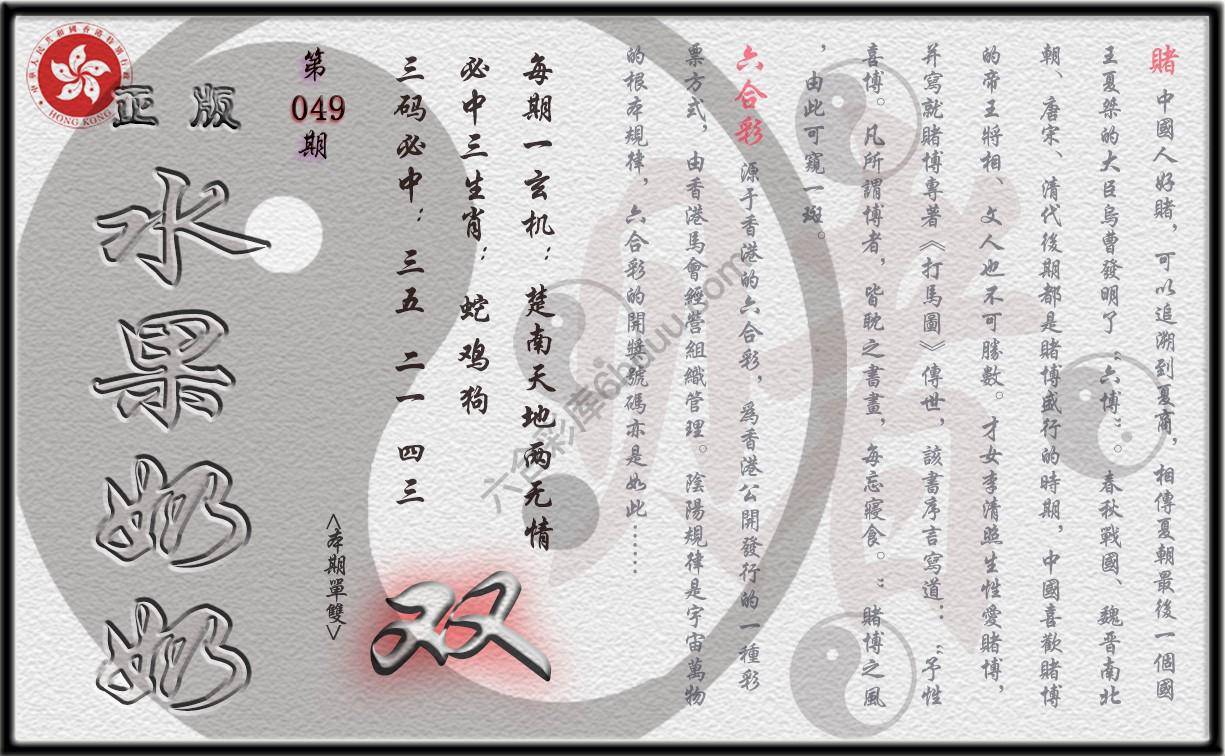 賭 中國人好賭，可以追溯到夏商，相傳夏朝最後一個國
王夏桀的大臣烏曹發明了“六博”。春秋戰國、魏晋南北
朝、唐宋、清代後期都是賭博盛行的時期，中國喜歡賭博
的帝王將相、文人也不可勝數。才女李清照生性愛賭博，
并寫就賭博專著《打馬圖》傳世，該書序言寫道：“予性
喜博。凡所謂博者，皆眈之書畫，每忘寢食。”賭博之風
，由此可窺一斑。
六合彩 源于香港的六合彩，爲香港公開發行的一種彩
票方式，由香港馬會經營組織管理。陰陽規律是宇宙萬物
的根本規律，六合彩的開獎號碼亦是如此……
每期一玄机：楚南天地两无情
必中三生肖：蛇鸡狗
三码必中：三五 二一 四三
<本期單雙>
双
第
049
期
正版
水果奶奶
中華人民共和國香港特別行政區
HONG KONG
六合彩库6hduu.com